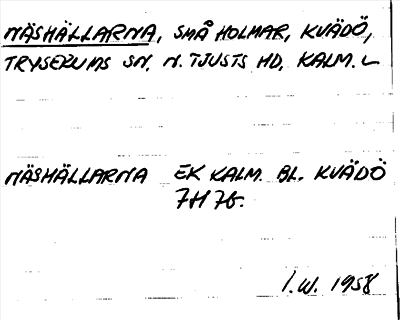 NÄSHÄLLARNA, SMÅ HOLMAR, KVÄDÖ,
TRYSERUMS SN, N. TJUSTS HD, KALM. L
NÄSHÄLLARNA EK KALM. BL. KVÄDÖ
7H 7b.
I.W. 1958